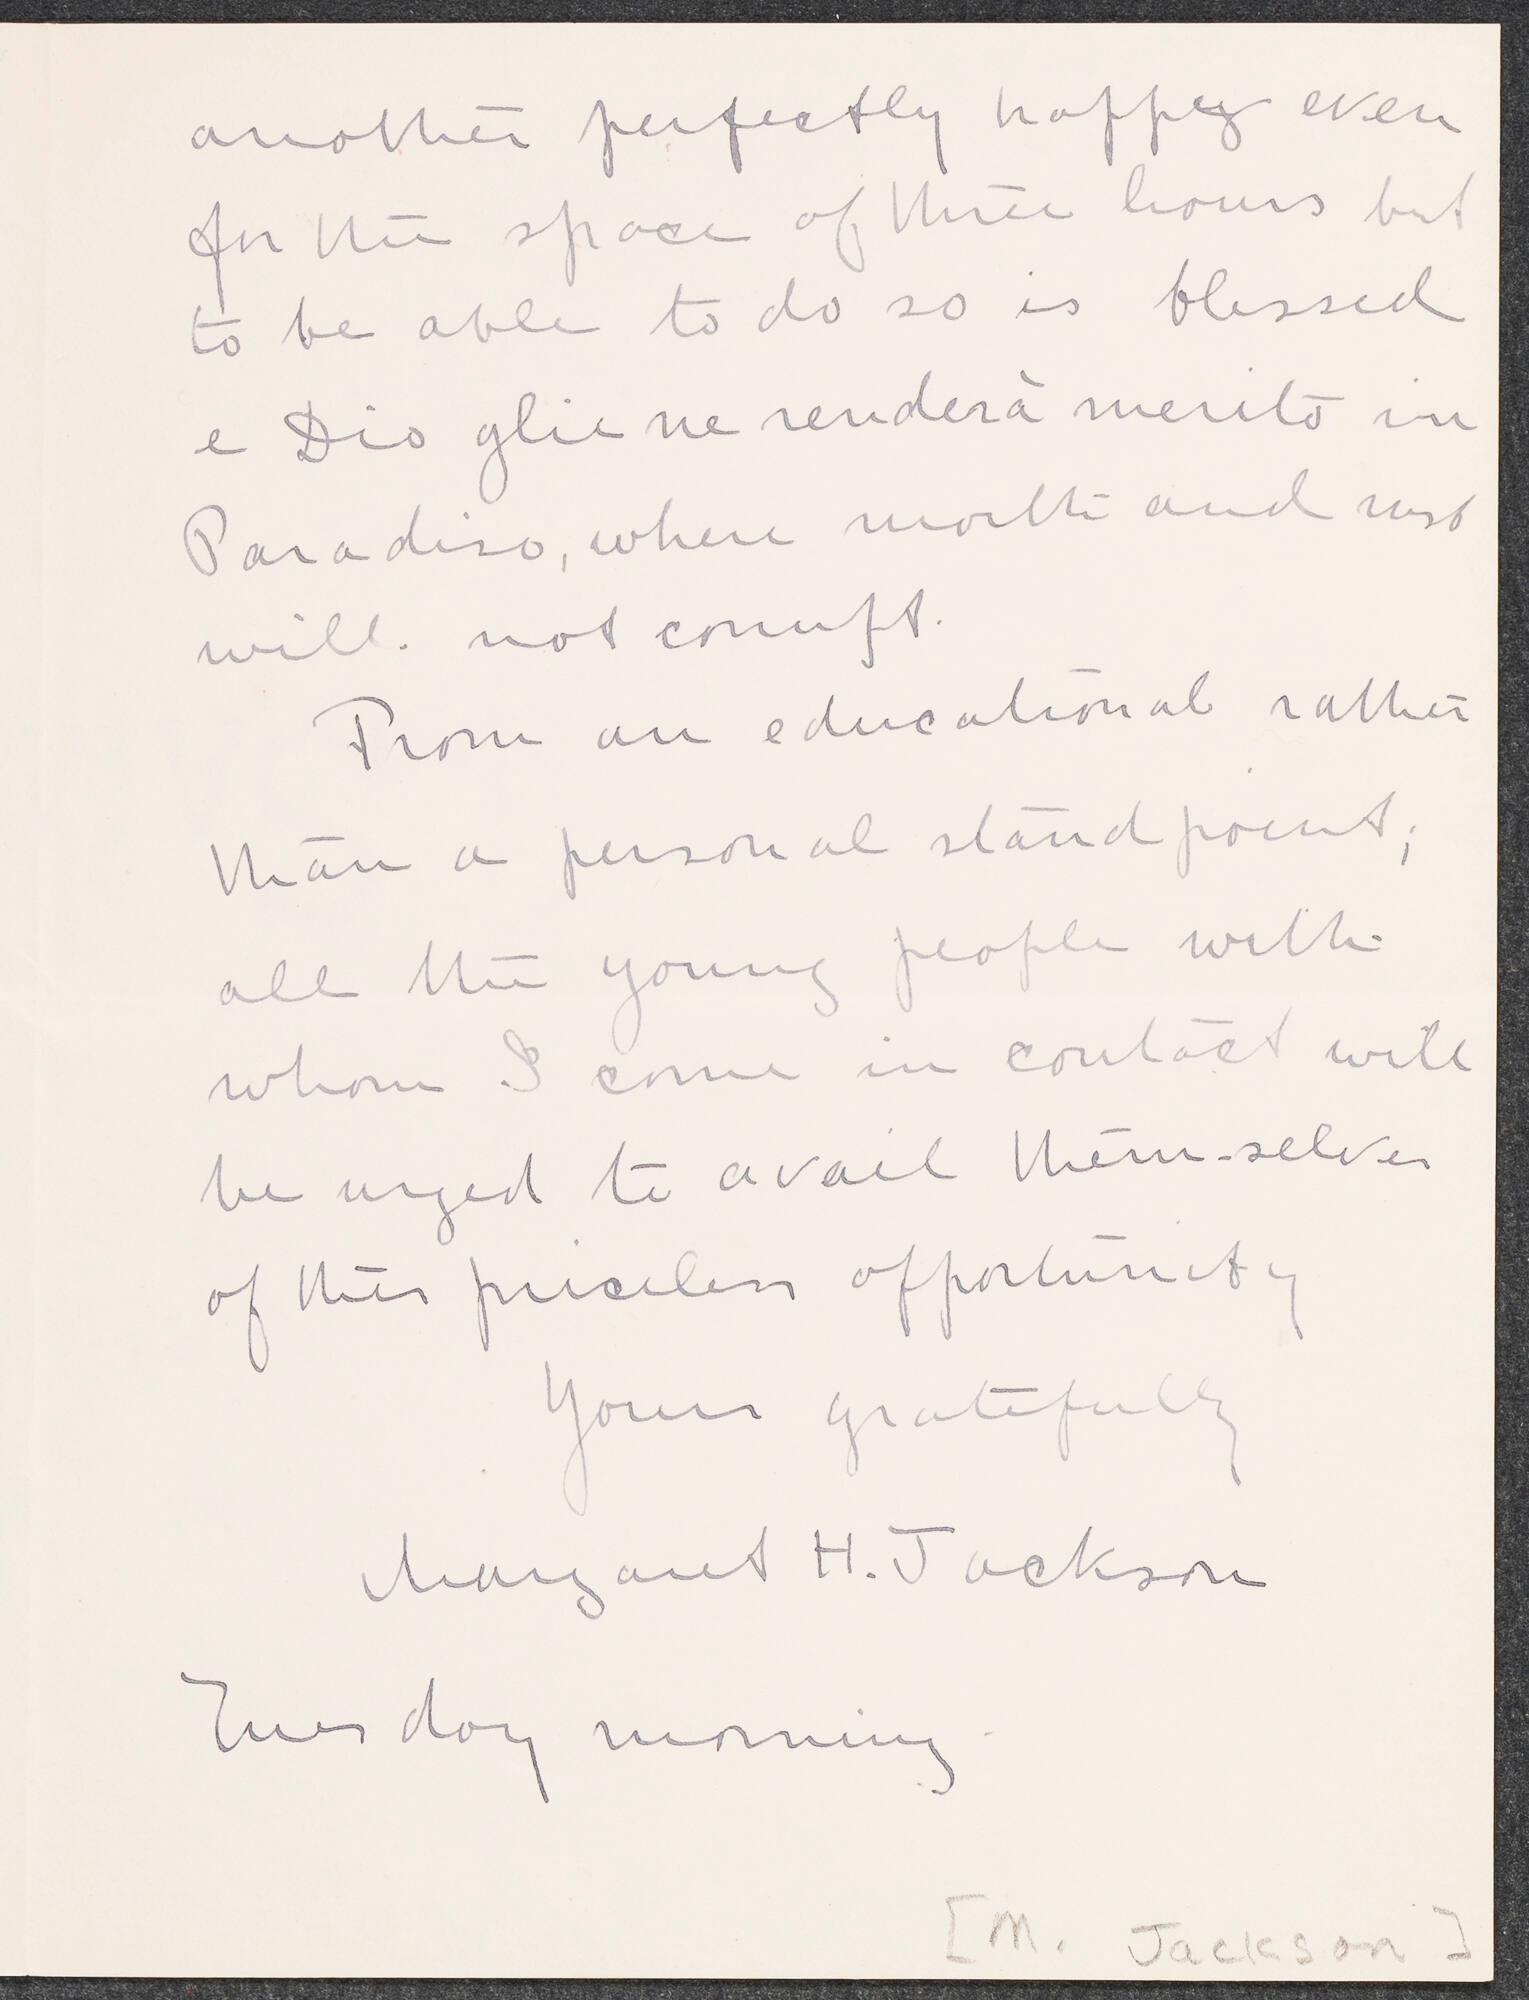 another perfectly happy even
for the space of three hours but
to be able to do so is blessed
e Dio gliene renderà merito in
Paradiso, where moth and rust
will not corrupt.
From an educational rather
than a personal standpoint,
all the young people with
whom I come in contact will
be urged to avail them-selves
of this priceless opportunity
Yours gratefully
Margaret H. Jackson
Tuesday morning.
[M. Jackson]